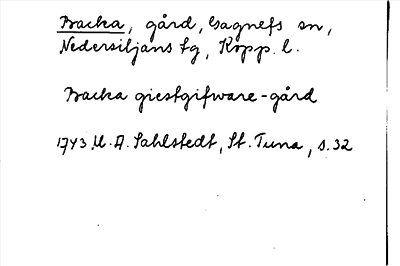 Backa, gård, Gagnefs sn,
Nedersiljans tg, Kopp. l.
Backa giestgifware-gård
1743 U. A. Sahlstedt, St. Tuna, s. 32